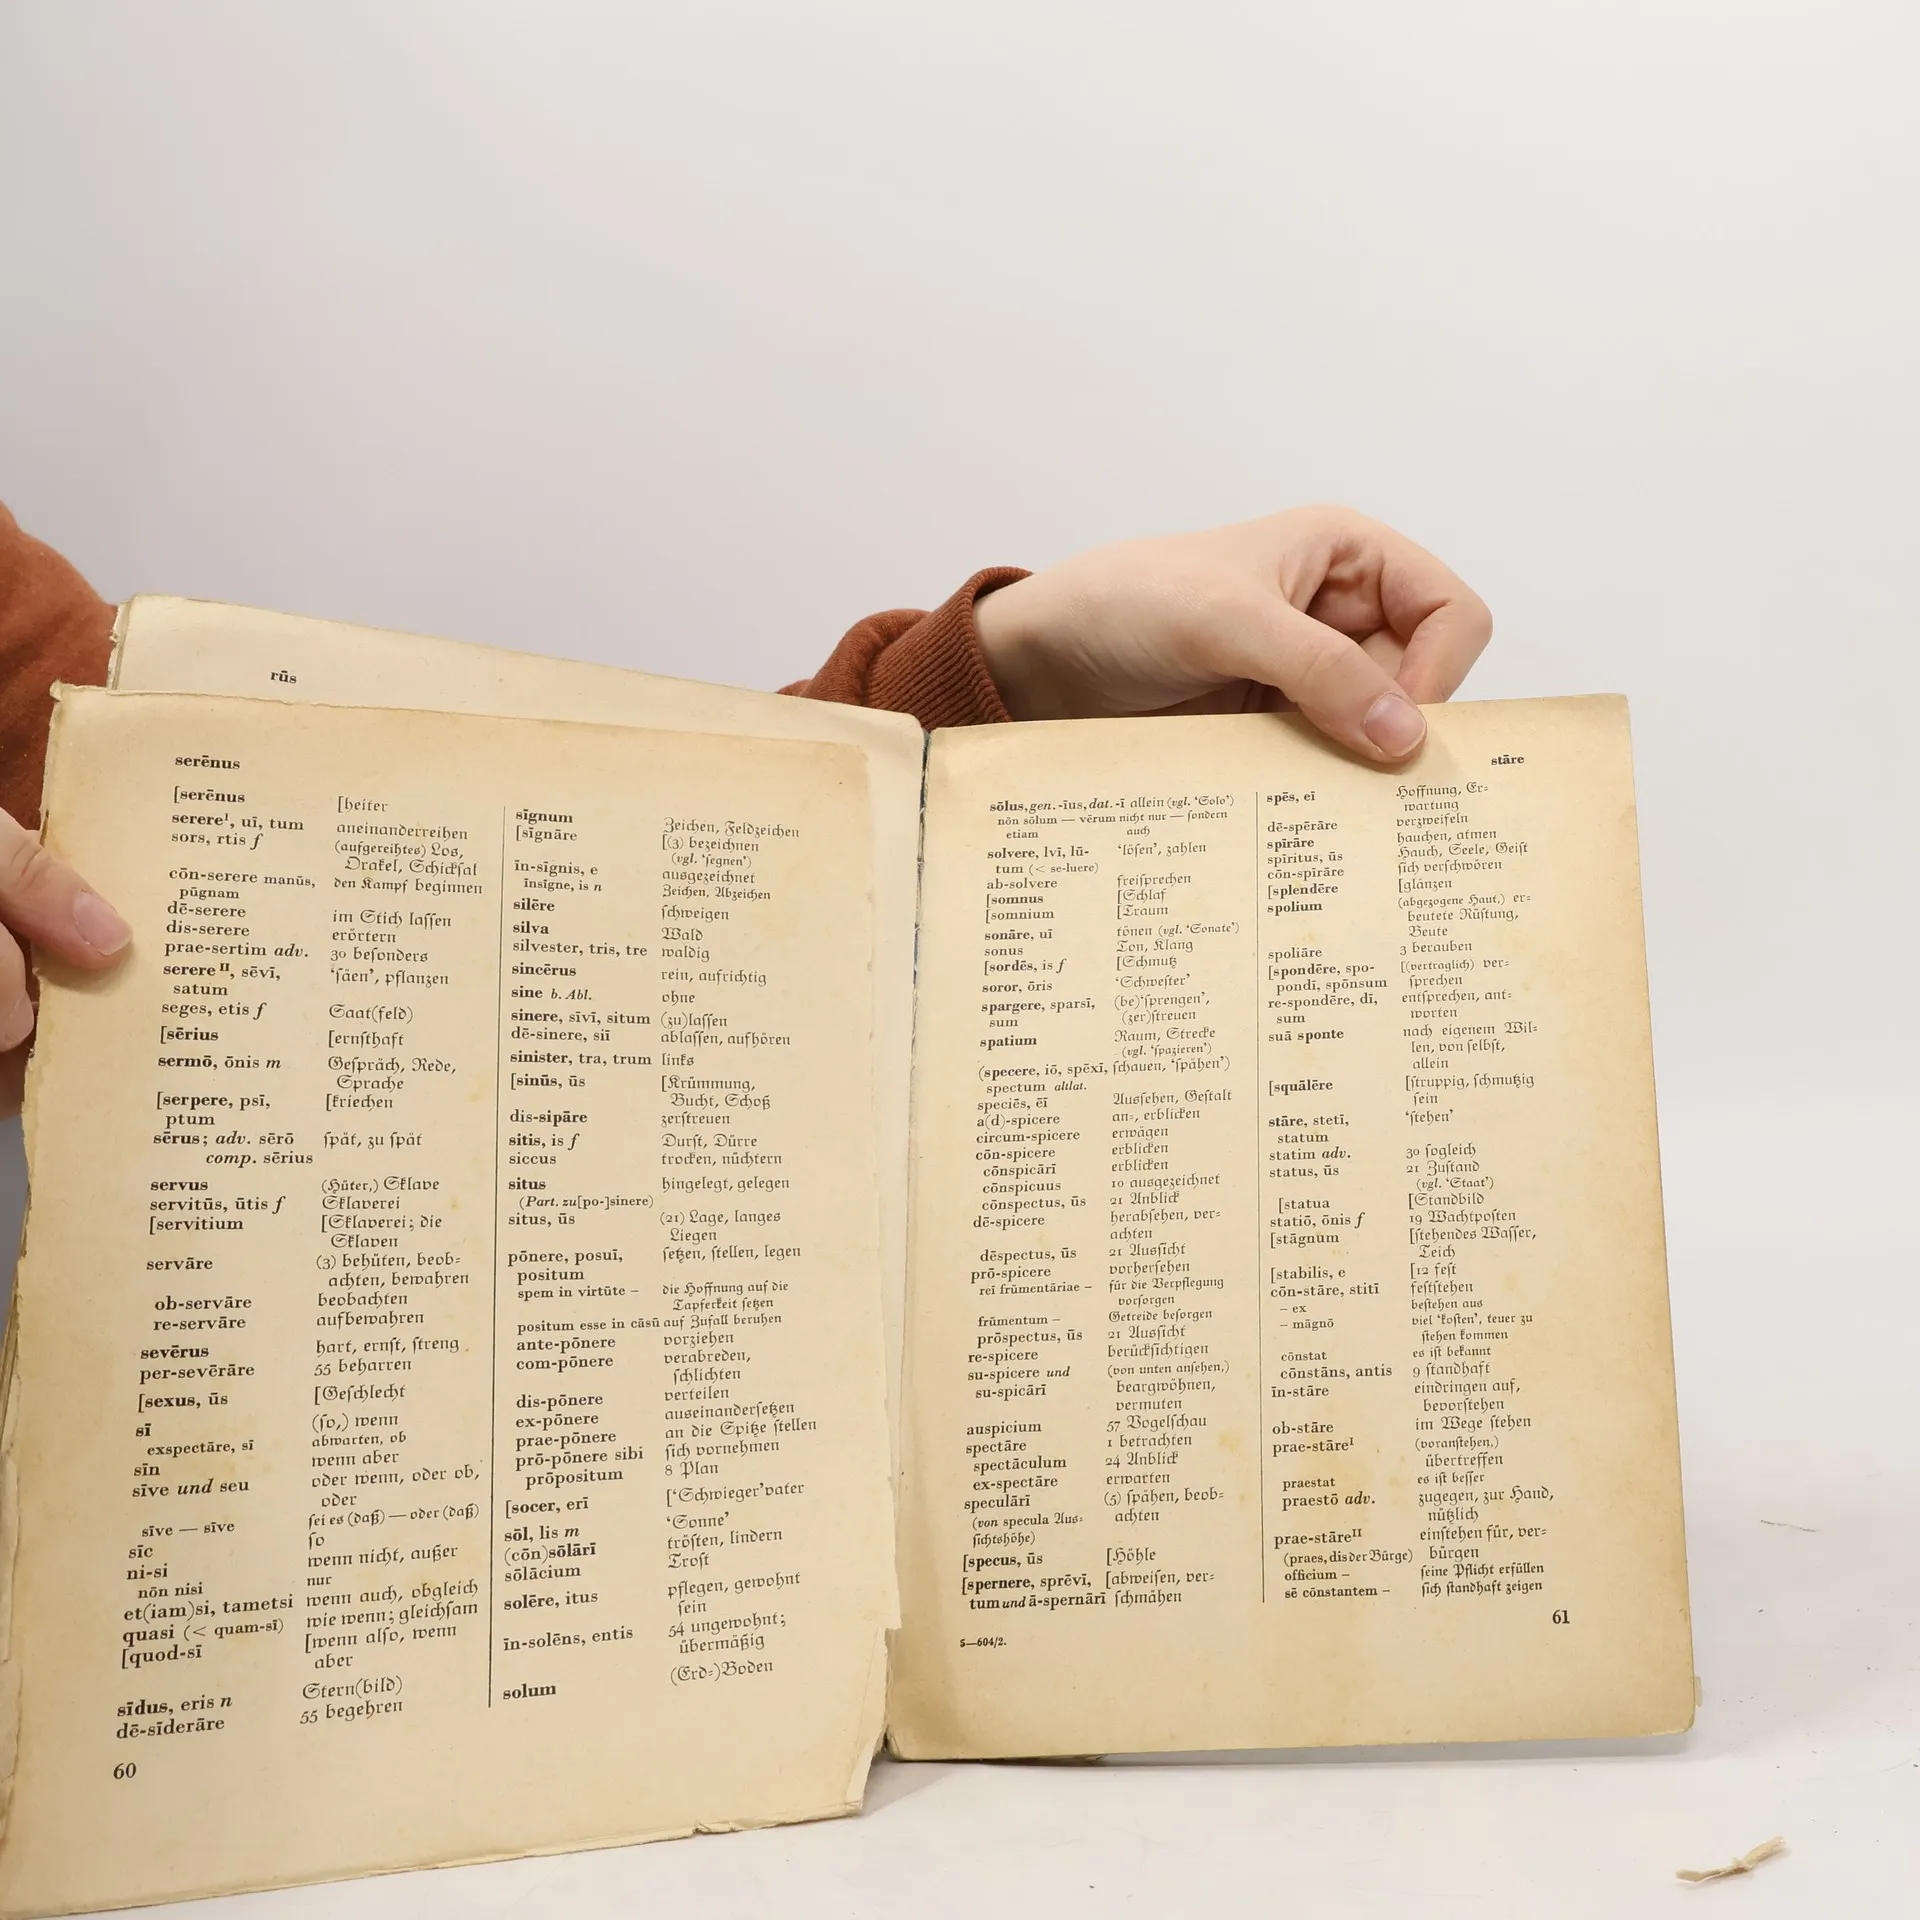 rūs
serēnus
[serēnus [heiter
serereᴵ, uī, tum aneinanderreihen
sors, rtis f (aufgereihtes) Los,
Orakel, Schicksal
cōn-serere manūs, den Kampf beginnen
pūgnam
dē-serere im Stich lassen
dis-serere erörtern
prae-sertim adv. 30 besonders
serereᴵᴵ, sēvī, ‘säen’, pflanzen
satum
seges, etis f Saat(feld)
[sērius [ernsthaft
sermō, ōnis m Gespräch, Rede,
Sprache
[serpere, psī, [kriechen
ptum
sērus; adv. sērō spät, zu spät
comp. sērius
servus (Hüter,) Sklave
servitūs, ūtis f Sklaverei
[servitium [Sklaverei; die
Sklaven
servāre (3) behüten, beob-
achten, bewahren
ob-servāre beobachten
re-servāre aufbewahren
sevērus hart, ernst, streng
per-sevērāre 55 beharren
[sexus, ūs [Geschlecht
sī (so,) wenn
exspectāre, sī abwarten, ob
sīn wenn aber
sīve und seu oder wenn, oder ob,
oder
sīve — sīve sei es (daß) — oder (daß)
sīc so
ni-si wenn nicht, außer
nōn nisi nur
et(iam)si, tametsi wenn auch, obgleich
quasi (< quam-sī) wie wenn; gleichsam
[quod-sī [wenn also, wenn
aber
sīdus, eris n Stern(bild)
dē-sīderāre 55 begehren
60
sīgnum Zeichen, Feldzeichen
[sīgnāre [(3) bezeichnen
(vgl. ‘segnen’)
īn-sīgnis, e ausgezeichnet
īnsīgne, is n Zeichen, Abzeichen
silēre schweigen
silva Wald
silvester, tris, tre waldig
sincērus rein, aufrichtig
sine b. Abl. ohne
sinere, sīvī, situm (zu)lassen
dē-sinere, siī ablassen, aufhören
sinister, tra, trum links
[sinūs, ūs [Krümmung,
Bucht, Schoß
dis-sipāre zerstreuen
sitis, is f Durst, Dürre
siccus trocken, nüchtern
situs hingelegt, gelegen
(Part. zu[po-]sinere)
situs, ūs (21) Lage, langes
Liegen
pōnere, posuī, setzen, stellen, legen
positum
spem in virtūte – die Hoffnung auf die
Tapferkeit setzen
positum esse in cāsū auf Zufall beruhen
ante-pōnere vorziehen
com-pōnere verabreden,
schlichten
dis-pōnere verteilen
ex-pōnere auseinandersetzen
prae-pōnere an die Spitze stellen
prō-pōnere sibi sich vornehmen
prōpositum 8 Plan
[socer, erī [‘Schwieger’vater
sōl, lis m ‘Sonne’
(cōn)sōlārī trösten, lindern
sōlācium Trost
solēre, itus pflegen, gewohnt
sein
īn-solēns, entis 54 ungewohnt;
übermäßig
solum (Erd-)Boden
stāre
sōlus, gen. -īus, dat. -ī allein (vgl. ‘Solo’)
nōn sōlum — vērum nicht nur — sondern
etiam auch
solvere, lvī, lū- ‘lösen’, zahlen
tum (< se-luere)
ab-solvere freisprechen
[somnus [Schlaf
[somnium [Traum
sonāre, uī tönen (vgl. ‘Sonate’)
sonus Ton, Klang
[sordēs, is f [Schmutz
soror, ōris ‘Schwester’
spargere, sparsī, (be)‘sprengen’,
sum (zer)streuen
spatium Raum, Strecke
(vgl. ‘spazieren’)
(specere, iō, spēxī, schauen, ‘spähen’)
spectum altlat.
speciēs, ēī Aussehen, Gestalt
a(d)-spicere an-, erblicken
circum-spicere erwägen
cōn-spicere erblicken
cōnspicārī erblicken
cōnspicuus 10 ausgezeichnet
cōnspectus, ūs 21 Anblick
dē-spicere herabsehen, ver-
achten
dēspectus, ūs 21 Aussicht
prō-spicere vorhersehen
reī frūmentāriae – für die Verpflegung
vorsorgen
frūmentum – Getreide besorgen
prōspectus, ūs 21 Aussicht
re-spicere berücksichtigen
su-spicere und (von unten ansehen,)
su-spicārī beargwöhnen,
vermuten
auspicium 57 Vogelschau
spectāre 1 betrachten
spectāculum 24 Anblick
ex-spectāre erwarten
speculārī (5) spähen, beob-
(von specula Aus- achten
sichtshöhe)
[specus, ūs [Höhle
[spernere, sprēvī, [abweisen, ver-
tum und ā-spernārī schmähen
S—604/2.
spēs, eī Hoffnung, Er-
wartung
dē-spērāre verzweifeln
spīrāre hauchen, atmen
spīritus, ūs Hauch, Seele, Geist
cōn-spīrāre sich verschwören
[splendēre [glänzen
spolium (abgezogene Haut,) er-
beutete Rüstung,
Beute
spoliāre 3 berauben
[spondēre, spo- [(vertraglich) ver-
pondī, spōnsum sprechen
re-spondēre, dī, entsprechen, ant-
sum worten
suā sponte nach eigenem Wil-
len, von selbst,
allein
[squālēre [struppig, schmutzig
sein
stāre, stetī, ‘stehen’
statum
statim adv. 30 sogleich
status, ūs 21 Zustand
(vgl. ‘Staat’)
[statua [Standbild
statiō, ōnis f 19 Wachtposten
[stāgnum [stehendes Wasser,
Teich
[stabilis, e [12 fest
cōn-stāre, stitī feststehen
– ex bestehen aus
– māgnō viel ‘kosten’, teuer zu
stehen kommen
cōnstat es ist bekannt
cōnstāns, antis 9 standhaft
īn-stāre eindringen auf,
bevorstehen
ob-stāre im Wege stehen
prae-stāreᴵ (voranstehen,)
übertreffen
praestat es ist besser
praestō adv. zugegen, zur Hand,
nützlich
prae-stāreᴵᴵ einstehen für, ver-
(praes, dis der Bürge) bürgen
officium – seine Pflicht erfüllen
sē cōnstantem – sich standhaft zeigen
61